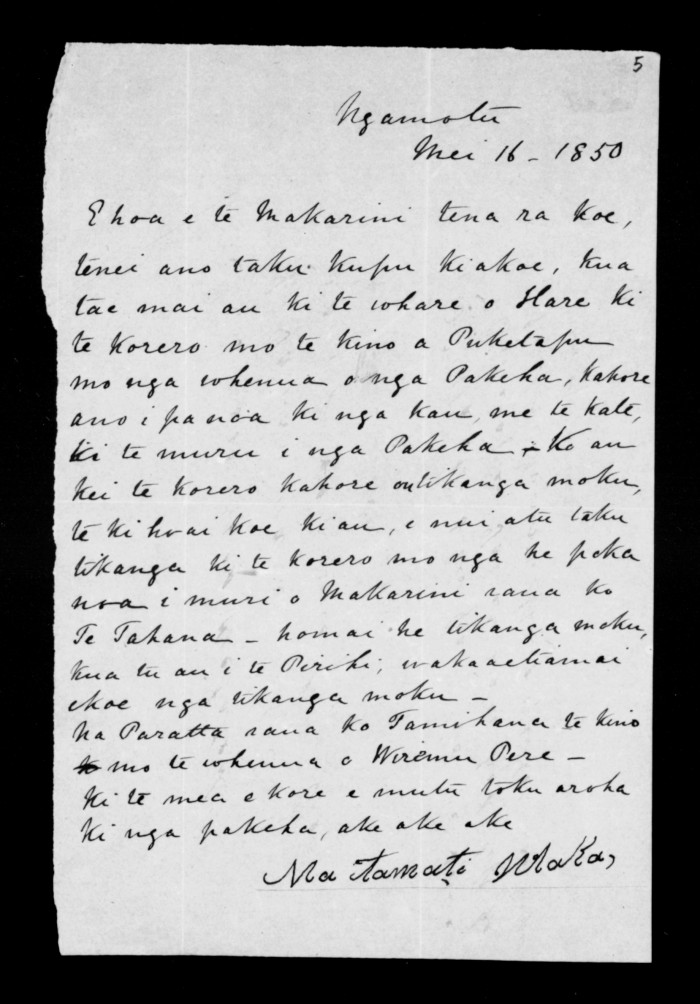 5
Ngamotu
Mei 16 - 1850
E hoa e te Makarini tena ra koe,
tenei ano taku kupu kiakoe, kua
tae mai au ki te whare o Hare ki
te korero mo te kino a Puketapu
mo nga whenua o nga Pakeha, kahore
ano i pa noa ki nga kau, me te kate,
ki te muru i nga Pakeha - Ko au
kei te korero kahore tikanga moku,
te ki hoai koe kiau, e nui atu taku
tikanga ki te korero mo nga he poka
noa i muri o Makarini raua ko
Te Tahana - homai he tikanga moku,
kua tu au i te Pirihi, wakaaetiamai
ekoe nga tikanga moku -
na Paratta raua ko Tamihana te kino
mo te whenua o Wiremu Pere -
Ki te mea e kore e mutu toku aroha
ki nga pakeha, ake ake ake
Na Tamati Waka,